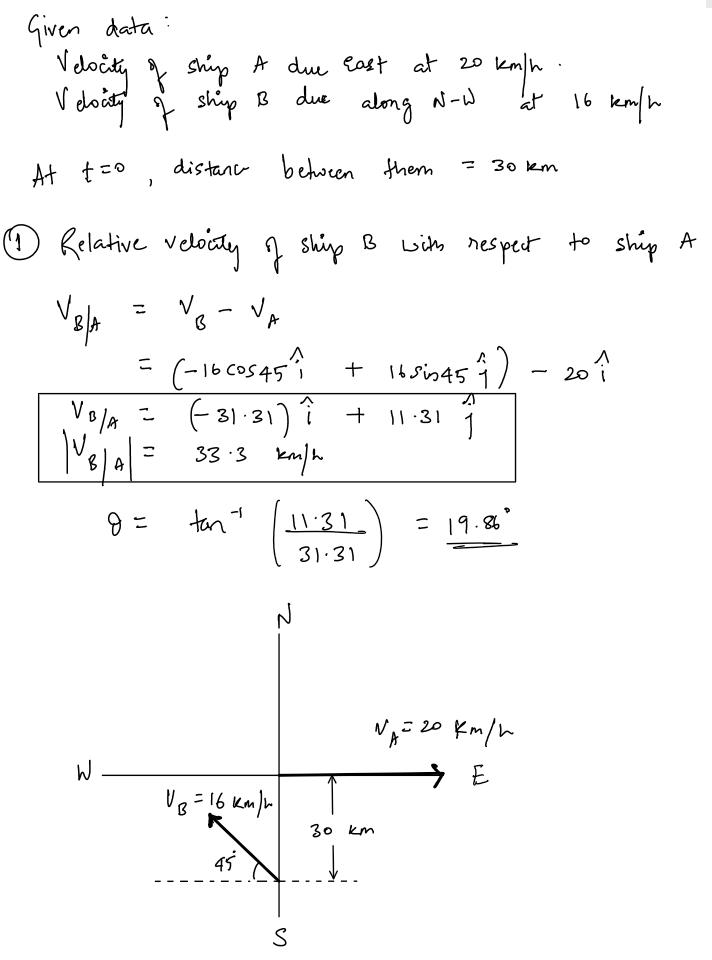 Given data :
Velocity of ship A due East at 20 km/h .
Velocity of ship B due along N-W at 16 km/h
At t=0 , distance between them = 30 km
① Relative velocity of ship B with respect to ship A
V_B/A = V_B - V_A
= (-16 cos45 î + 16 sin45 ĵ) - 20 î
V_B/A = (-31.31) î + 11.31 ĵ
|V_B/A| = 33.3 km/h
θ = tan⁻¹ (11.31/31.31) = 19.86°
N
V_A = 20 Km/h
W
E
V_B = 16 Km/h
30 km
45°
S